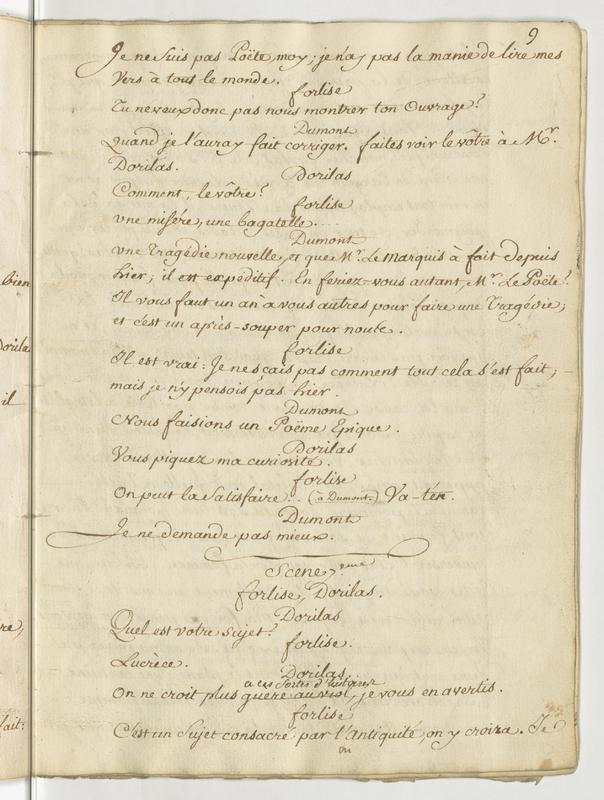 9
Je ne suis pas Poëte, moy; je n'ay pas la manie de lire mes
Vers à tout le monde.
forlise
Tu ne veux donc pas nous montrer ton Ouvrage?
Dumont
Quand je l'auray fait corriger. faites voir le vôtre à Mr.
Dorilas.
Dorilas
Comment, le vôtre?
forlise
une misére, une bagatelle....
Dumont
une Tragédie nouvelle, et que Mr. Le Marquis à fait depuis
hier; il est expéditif. En feriez-vous autant, Mr. Le Poëte?
Il vous faut un an à vous autres pour faire une Tragédie;
et c'est un après-souper pour nous.
forlise
Il est vrai: Je ne sçais pas comment tout cela s'est fait;
mais je n'y pensois pas hier.
Dumont
Nous faisions un Poëme Epique.
Dorilas
Vous piquez ma curiosité.
forlise
On peut la Satisfaire... (à Dumont.) Va-t'en.
Dumont
Je ne demande pas mieux.
Scene 7.eme
forlise, Dorilas.
Dorilas
Quel est votre sujet?
forlise.
Lucrèce.
Dorilas
a ces sortes d'histoires
On ne croit plus guère au viol, je vous en avertis.
forlise
C'est un Sujet consacré par l'antiquité, on y croira. Je
bien
Dorila
il
re,
fait: